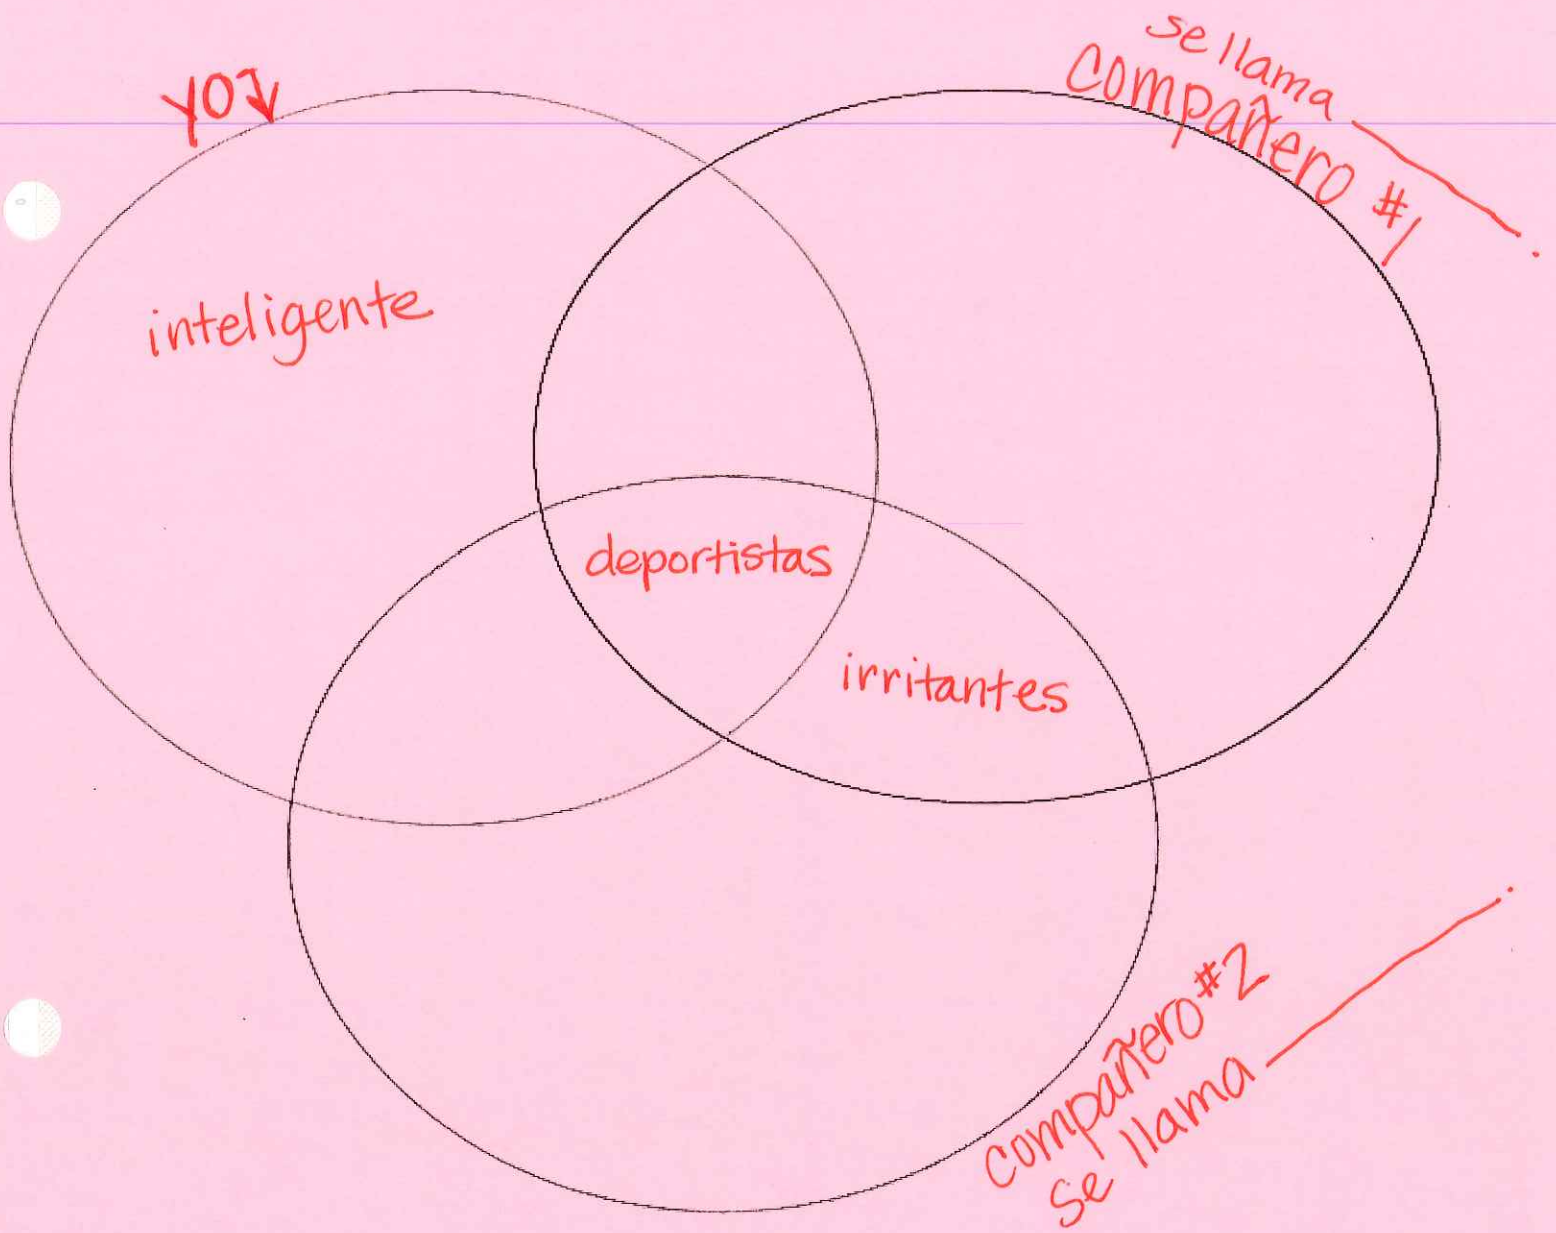 YO
se llama ______.
compañero #1
inteligente
deportistas
irritantes
compañero #2
se llama ______.